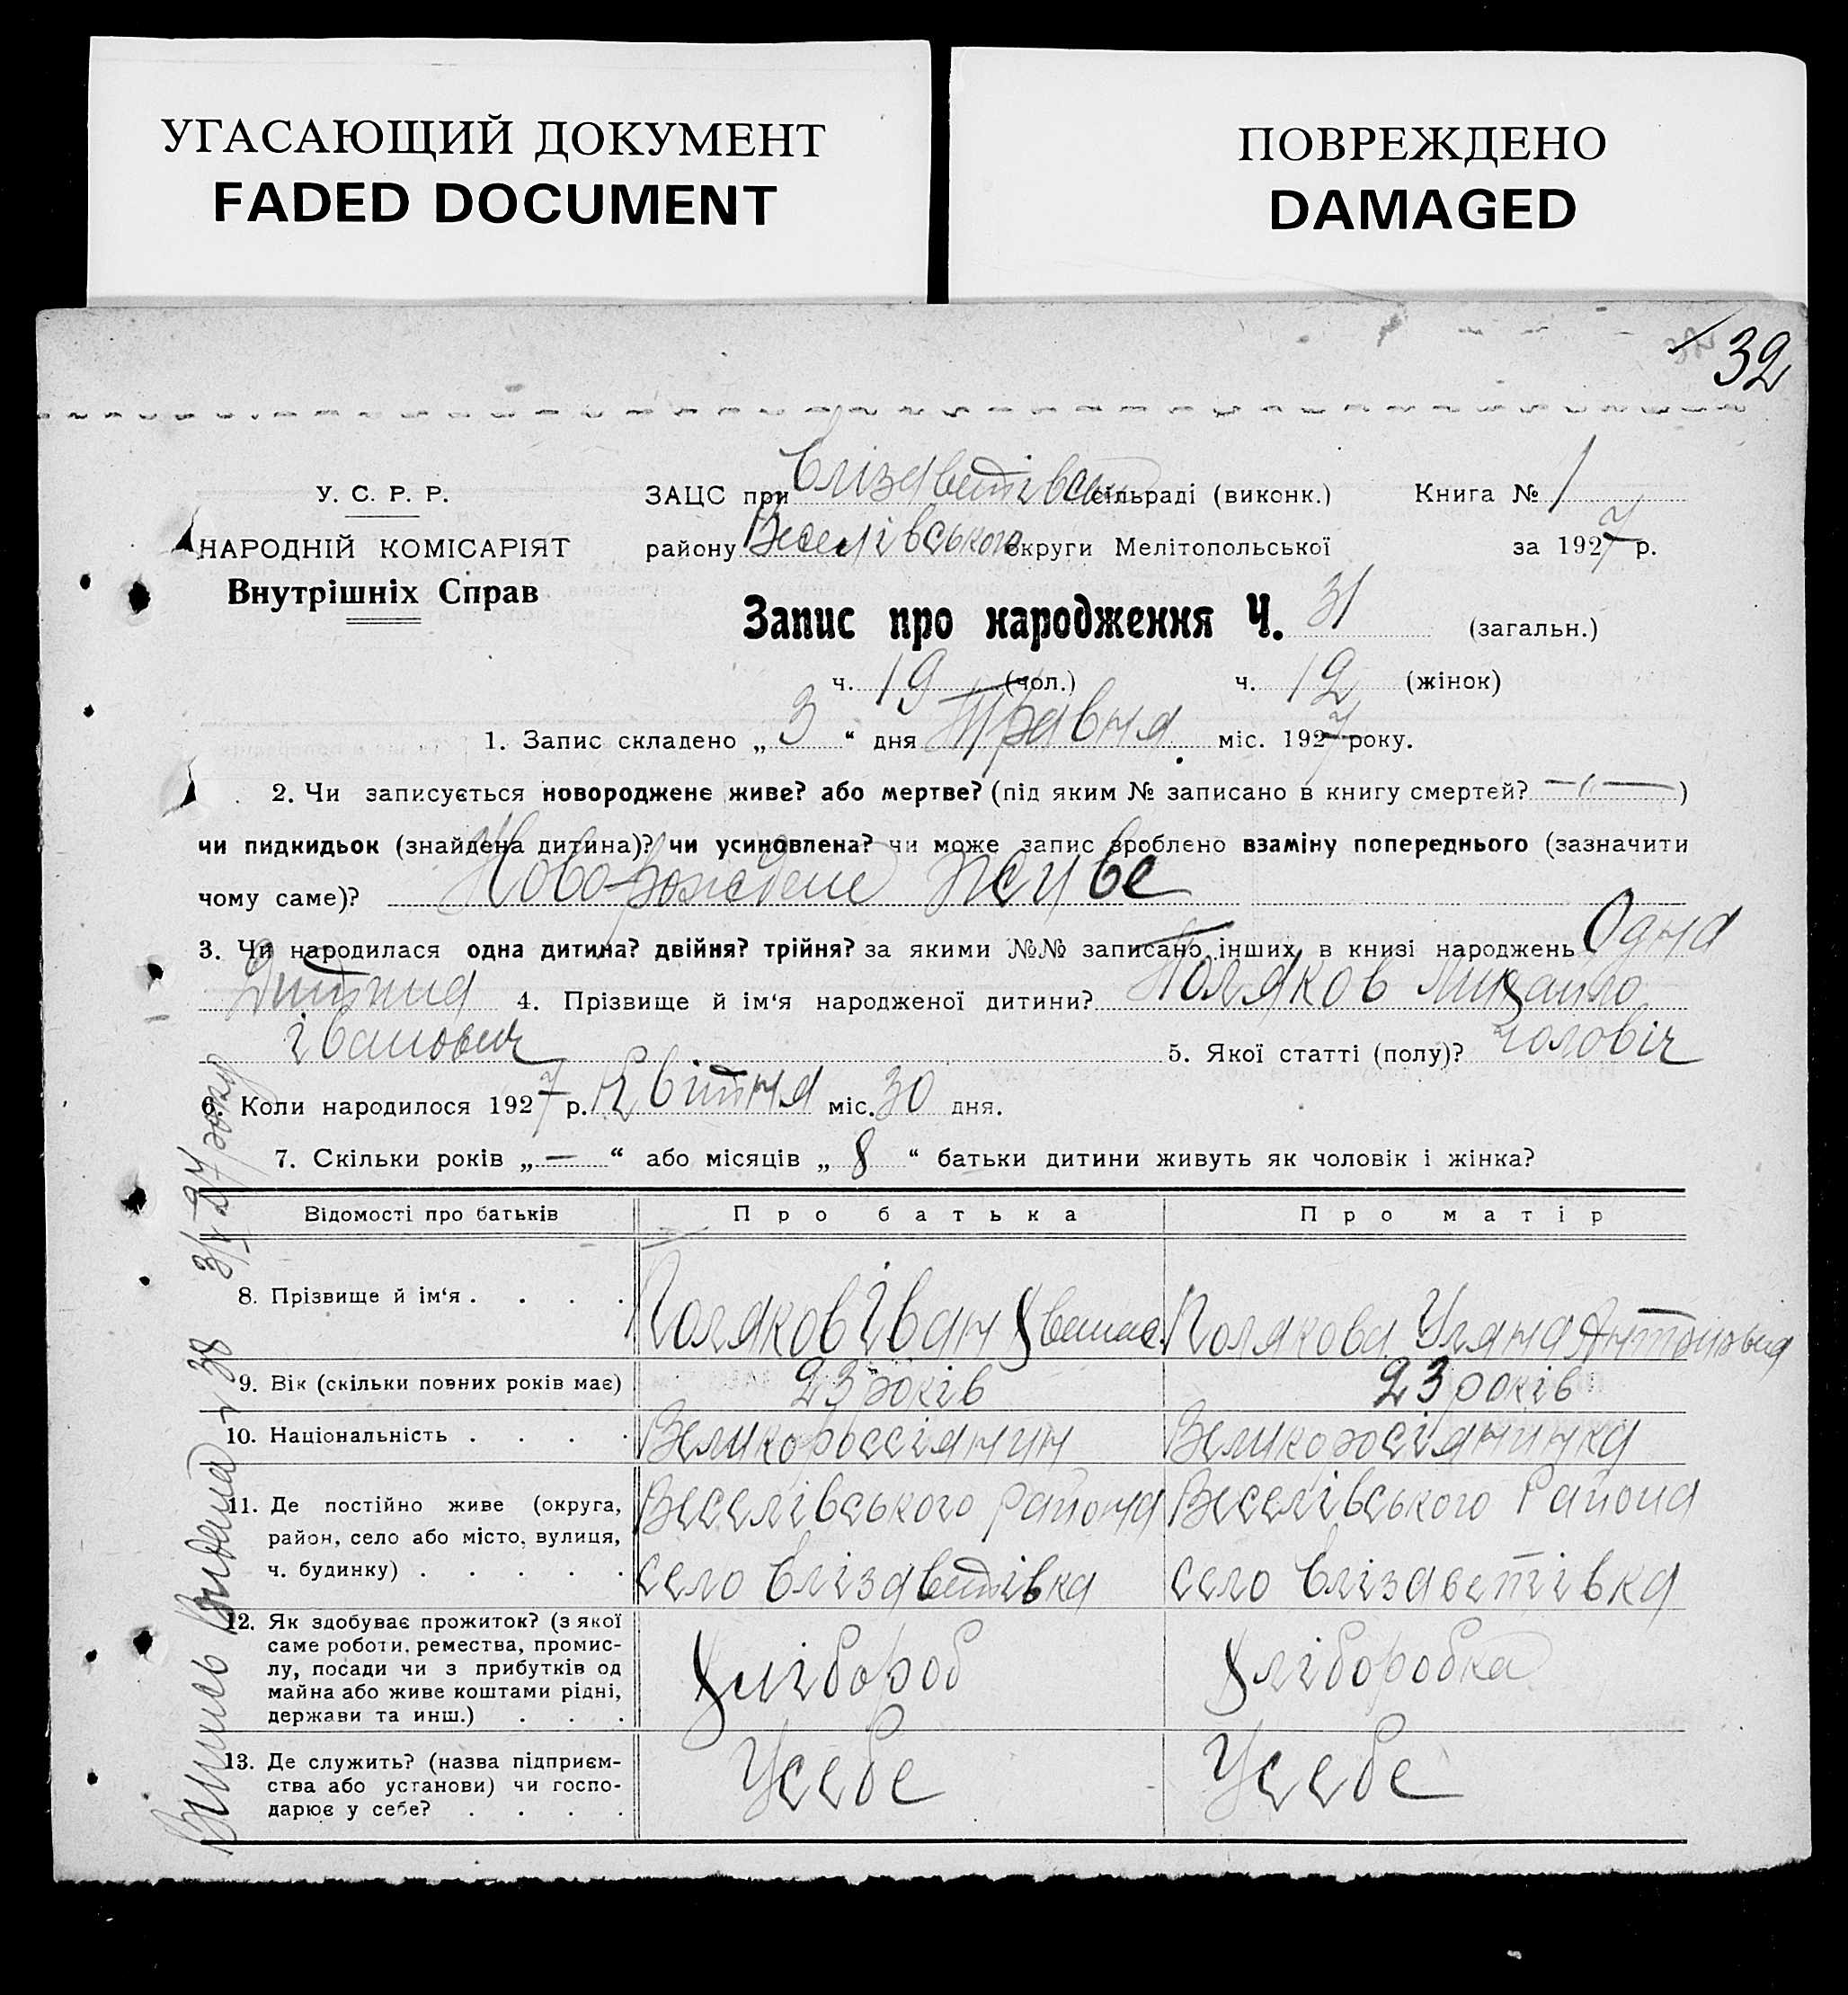 УГАСАЮЩИЙ ДОКУМЕНТ
FADED DOCUMENT
ПОВРЕЖДЕНО
DAMAGED
32
У. С. Р. Р.
НАРОДНІЙ КОМІСАРІЯТ
Внутрішніх Справ
ЗАЦС при Єлізаветівськ сільраді (виконк.) Книга № 1
району Веселівського округи Мелітопольської за 1927 р.
Запис про народження Ч. 31 (загальн.)
ч. 19 (чол.) ч. 12 (жінок)
1. Запис складено „ 3 “ дня Травня міс. 1927 року.
2. Чи записується новороджене живе? або мертве? (під яким № записано в книгу смертей? —〃— )
чи пидкидьок (знайдена дитина)? чи усиновлена? чи може запис зроблено взаміну попереднього (зазначити
чому саме)? Новорождене живе
3. Чи народилася одна дитина? двійня? трійня? за якими №№ записано інших в книзі народжень Одна
Дитина 4. Прізвище й ім‘я народженої дитини? Поляков Михайло
іванович 5. Якої статті (полу)? чоловіч
6. Коли народилося 1927 р. Квітня міс. 30 дня.
7. Скільки років „ — “ або місяців „ 8 “ батьки дитини живуть як чоловік і жінка?
Відомості про батьків Про батька Про матір
8. Прізвище й ім‘я . . . . Поляков Іван Полякова Уляна
9. Вік (скільки повних років має) 23 років 23 років
10. Національність . . . . Великороссіянин Великоросіянинка
11. Де постійно живе (округа, Веселівського района Веселівського Района
район, село або місто, вулиця,
ч. будинку) . . . . . село Єлізаветівка село Єлізаветівка
12. Як здобуває прожиток? (з якої
саме роботи, ремества, промис-
лу, посади чи з прибутків од Хлібороб Хліборобка
майна або живе коштами рідні,
держави та инш.) . . .
13. Де служить? (назва підприєм-
ства або установи) чи госпо- Усебе Усебе
дарює у себе? . . . .
Випись Видена 38 3/V 27 року